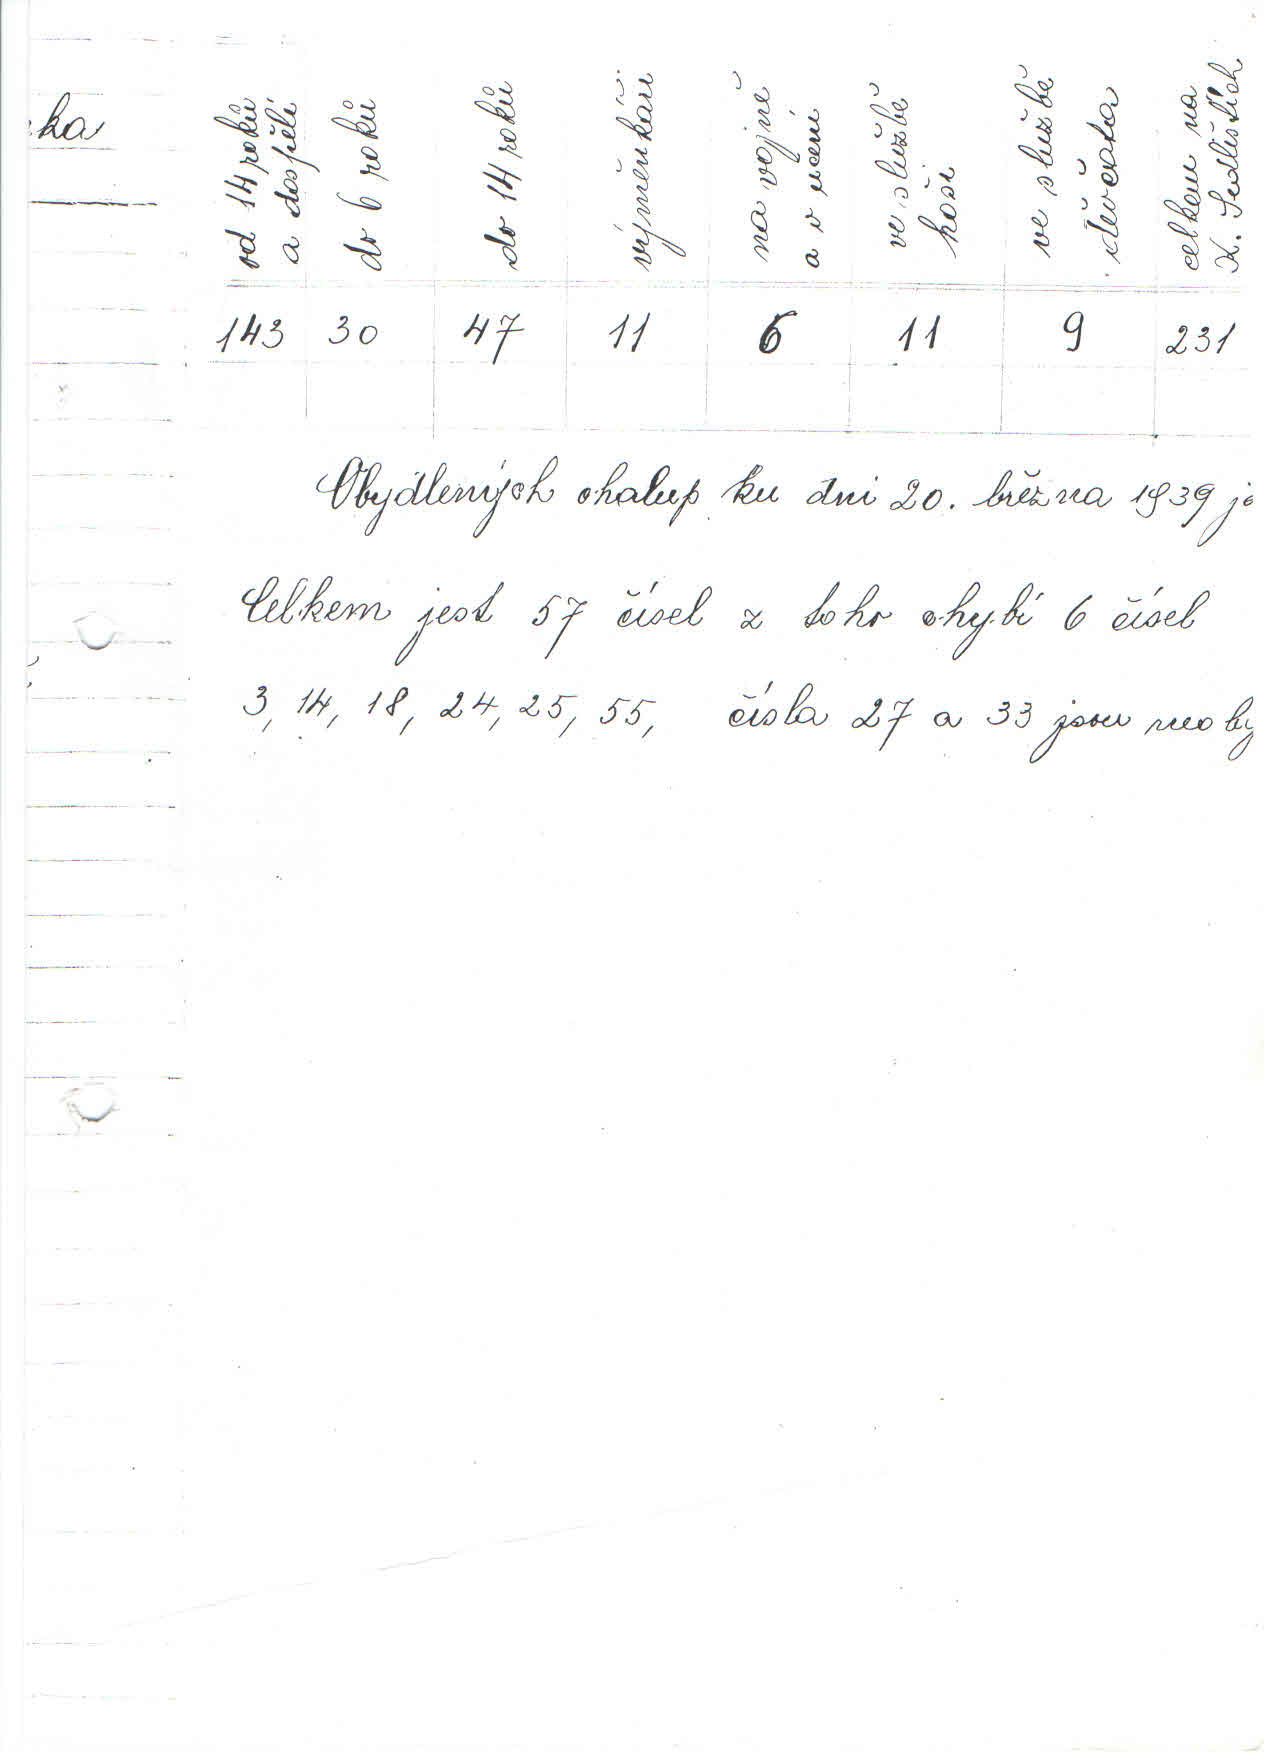 ka
od 14 roků
a dospělí
do 6 roků
do 14 roků
výměnkáři
na vojně
a v učení
ve službě
hoši
ve službě
děvčata
celkem na
K. Sedlištích
143 30 47 11 6 11 9 231
Obydlených chalup ku dni 20. března 1939 je
Celkem jest 57 čísel z toho chybí 6 čísel
3, 14, 18, 24, 25, 55, čísla 27 a 33 jsou neoby